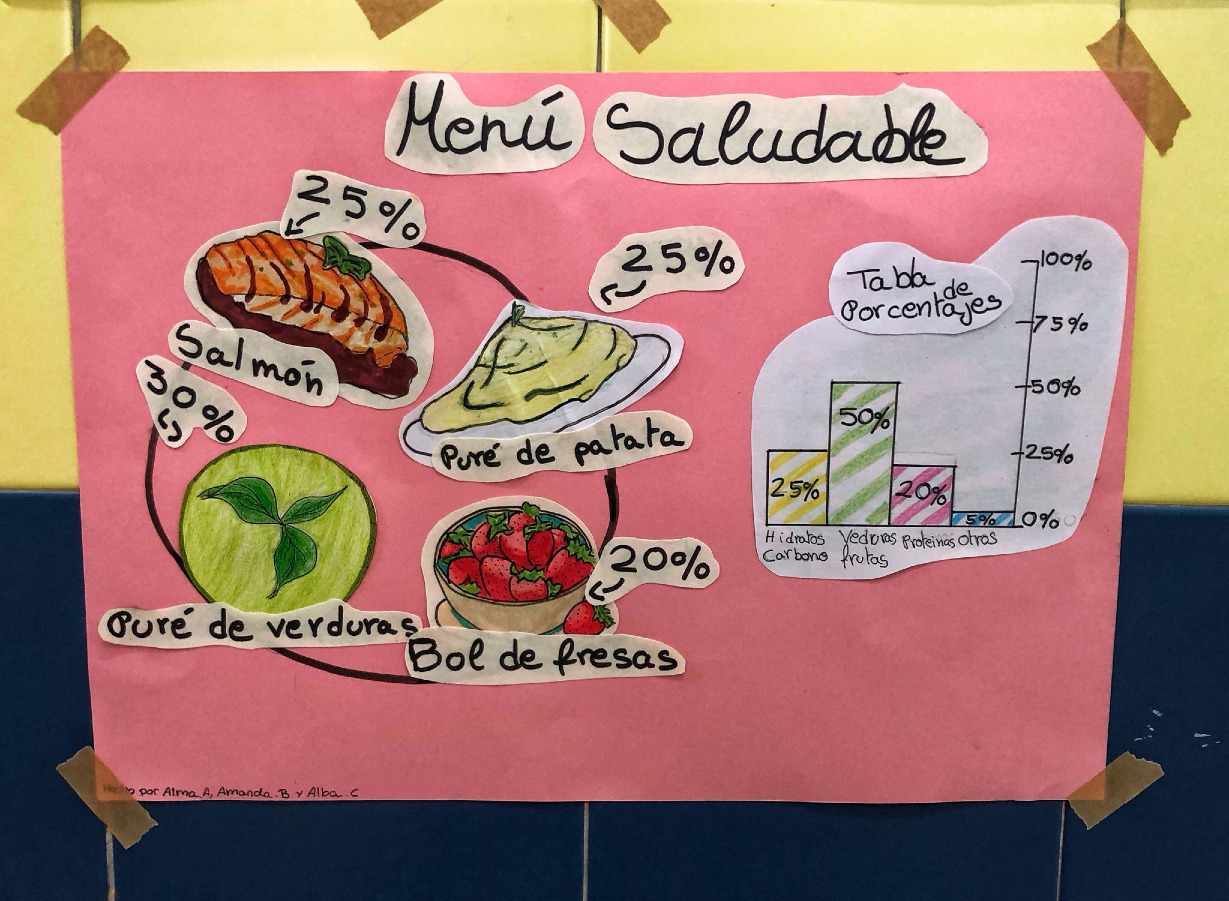 Menú Saludable
25%
Salmón
25%
Puré de patata
30%
Puré de verduras
20%
Bol de fresas
Tabla
de
Porcentajes
100%
75%
50%
25%
0%
25%
50%
20%
5%
Hidratos
Carbono
Verduras
frutas
Proteinas
otros
Hecho por Alma.A, Amanda.B y Alba.C